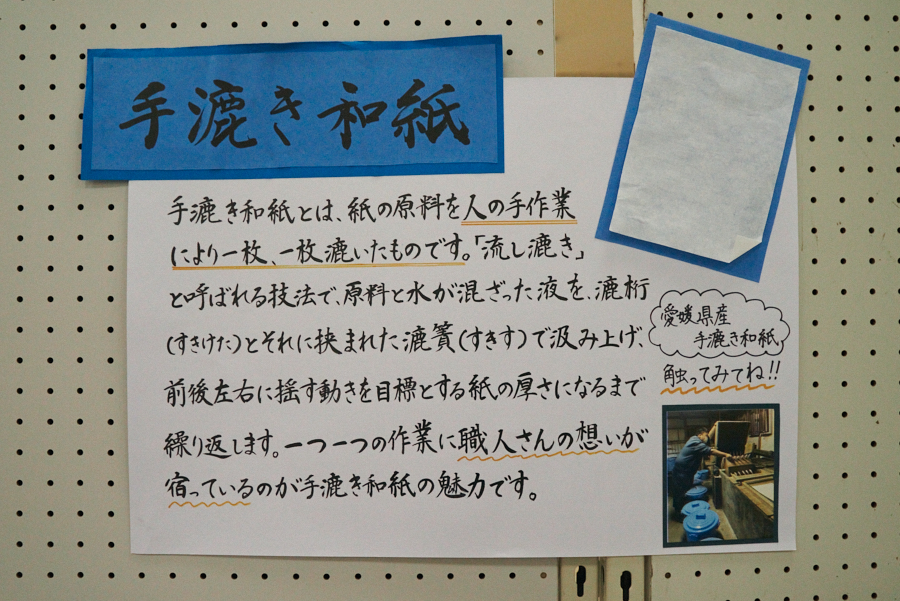 手漉き和紙
手漉き和紙とは、紙の原料を人の手作業
により一枚、一枚漉いたものです。「流し漉き」
と呼ばれる技法で、原料と水が混ざった液を、漉桁
(すきけた)とそれに挟まれた漉簀(すきす)で汲み上げ、
前後左右に揺す動きを目標とする紙の厚さになるまで
繰り返します。一つ一つの作業に職人さんの想いが
宿っているのが手漉き和紙の魅力です。
愛媛県産
手漉き和紙
触ってみてね!!